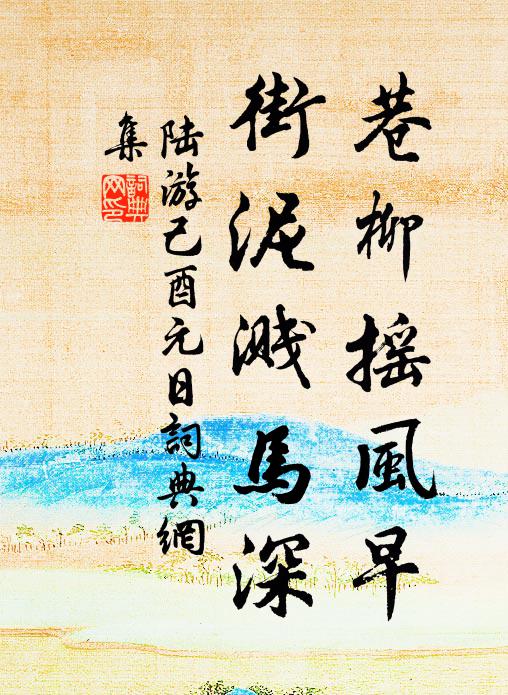 巷柳摇風早
街泥溅馬深
陆游己酉元日詞典網
集
詞典
网印